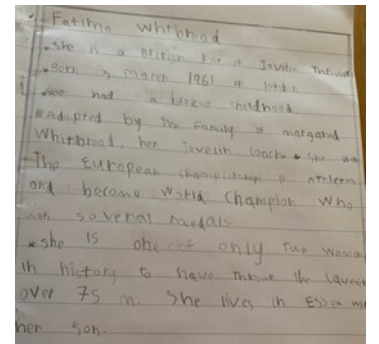 Fatima Whitbread
• She is a British
• Born 3 March 1961 in London
• had a difficult childhood
• Adopted by the Family of margaret
Whitbread, her Javelin coach • She
• The European championship
and become World Champion Who
won several medals.
• she is one of only Two Woman
in history to have Thrown the
over 75 m. She lives in Essex
her son.